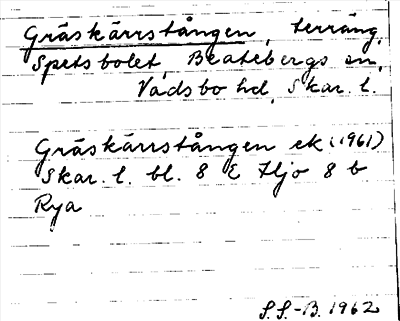 Gräskärrstången, terräng,
Spetsbolet, Beatebergs sn,
Vadsbo hd, Skar. l.
Gräskärrstången ek (1961)
Skar. l. bl. 8 E Hjo 8 b
Rya
S.S.-B. 1962